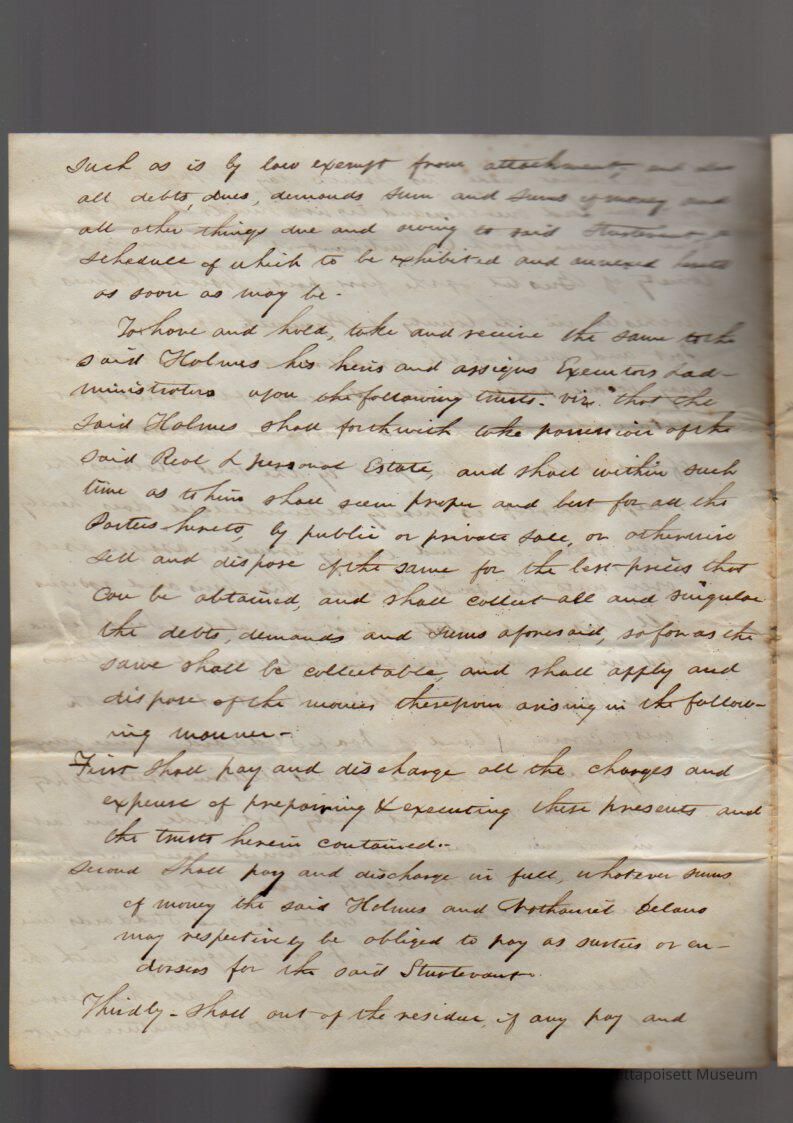 such as is by law exempt from attachment, and also
all debts, dues, demands sum and sums of money and
all other things due and owing to said Sturtevant, a
schedule of which to be exhibited and annexed hereto
as soon as may be.
To have and hold, take and receive the same to the
said Holmes his heirs and assigns Executors & ad-
ministrators upon the following trusts. viz. that the
said Holmes shall forthwith take possession of the
said Real & personal Estate, and shall within such
time as to him shall seem proper and best for all the
Parties hereto, by public or private sale, or otherwise
sell and dispose of the same for the best prices that
can be obtained, and shall collect all and singular
the debts, demands and sums aforesaid, so far as the
same shall be collectable, and shall apply and
dispose of the monies therefrom arising in the follow-
ing manner-
First shall pay and discharge all the charges and
expense of preparing & executing these presents and
the trusts herein contained.-
Second shall pay and discharge in full, whatever sums
of money the said Holmes and Nathaniel Delano
may respectively be obliged to pay as sureties or en-
dorsers for the said Sturtevant.
Thirdly - shall out of the residue, if any pay and
ttapoisett Museum